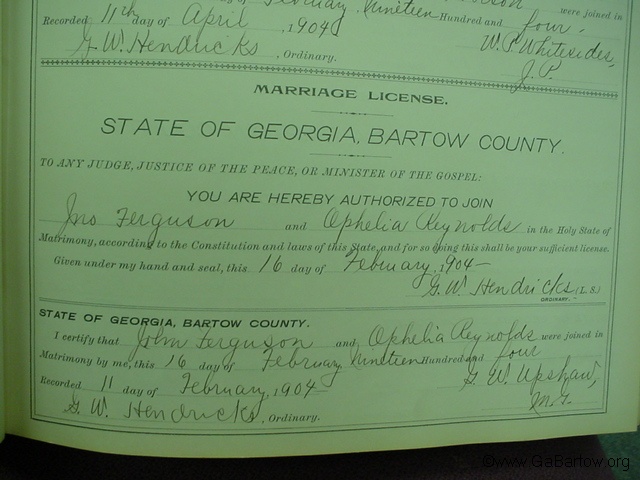 February Nineteen Hundred and four. were joined in
Recorded 11th day of April, 1904
W. P. Whitesides,
G. W. Hendricks, Ordinary.
J. P.
MARRIAGE LICENSE.
STATE OF GEORGIA, BARTOW COUNTY.
TO ANY JUDGE, JUSTICE OF THE PEACE, OR MINISTER OF THE GOSPEL:
YOU ARE HEREBY AUTHORIZED TO JOIN
Jno Ferguson and Ophelia Reynolds in the Holy State of
Matrimony, according to the Constitution and laws of this State, and for so doing this shall be your sufficient license.
Given under my hand and seal, this 16 day of February, 1904
G. W. Hendricks (L. S.)
ORDINARY.
STATE OF GEORGIA, BARTOW COUNTY.
I certify that John Ferguson and Ophelia Reynolds were joined in
Matrimony by me, this 16 day of February Nineteen Hundred and four
Recorded 11 day of February, 1904
G. W. Upshaw,
G. W. Hendricks, Ordinary.
M.G.
©www.GaBartow.org